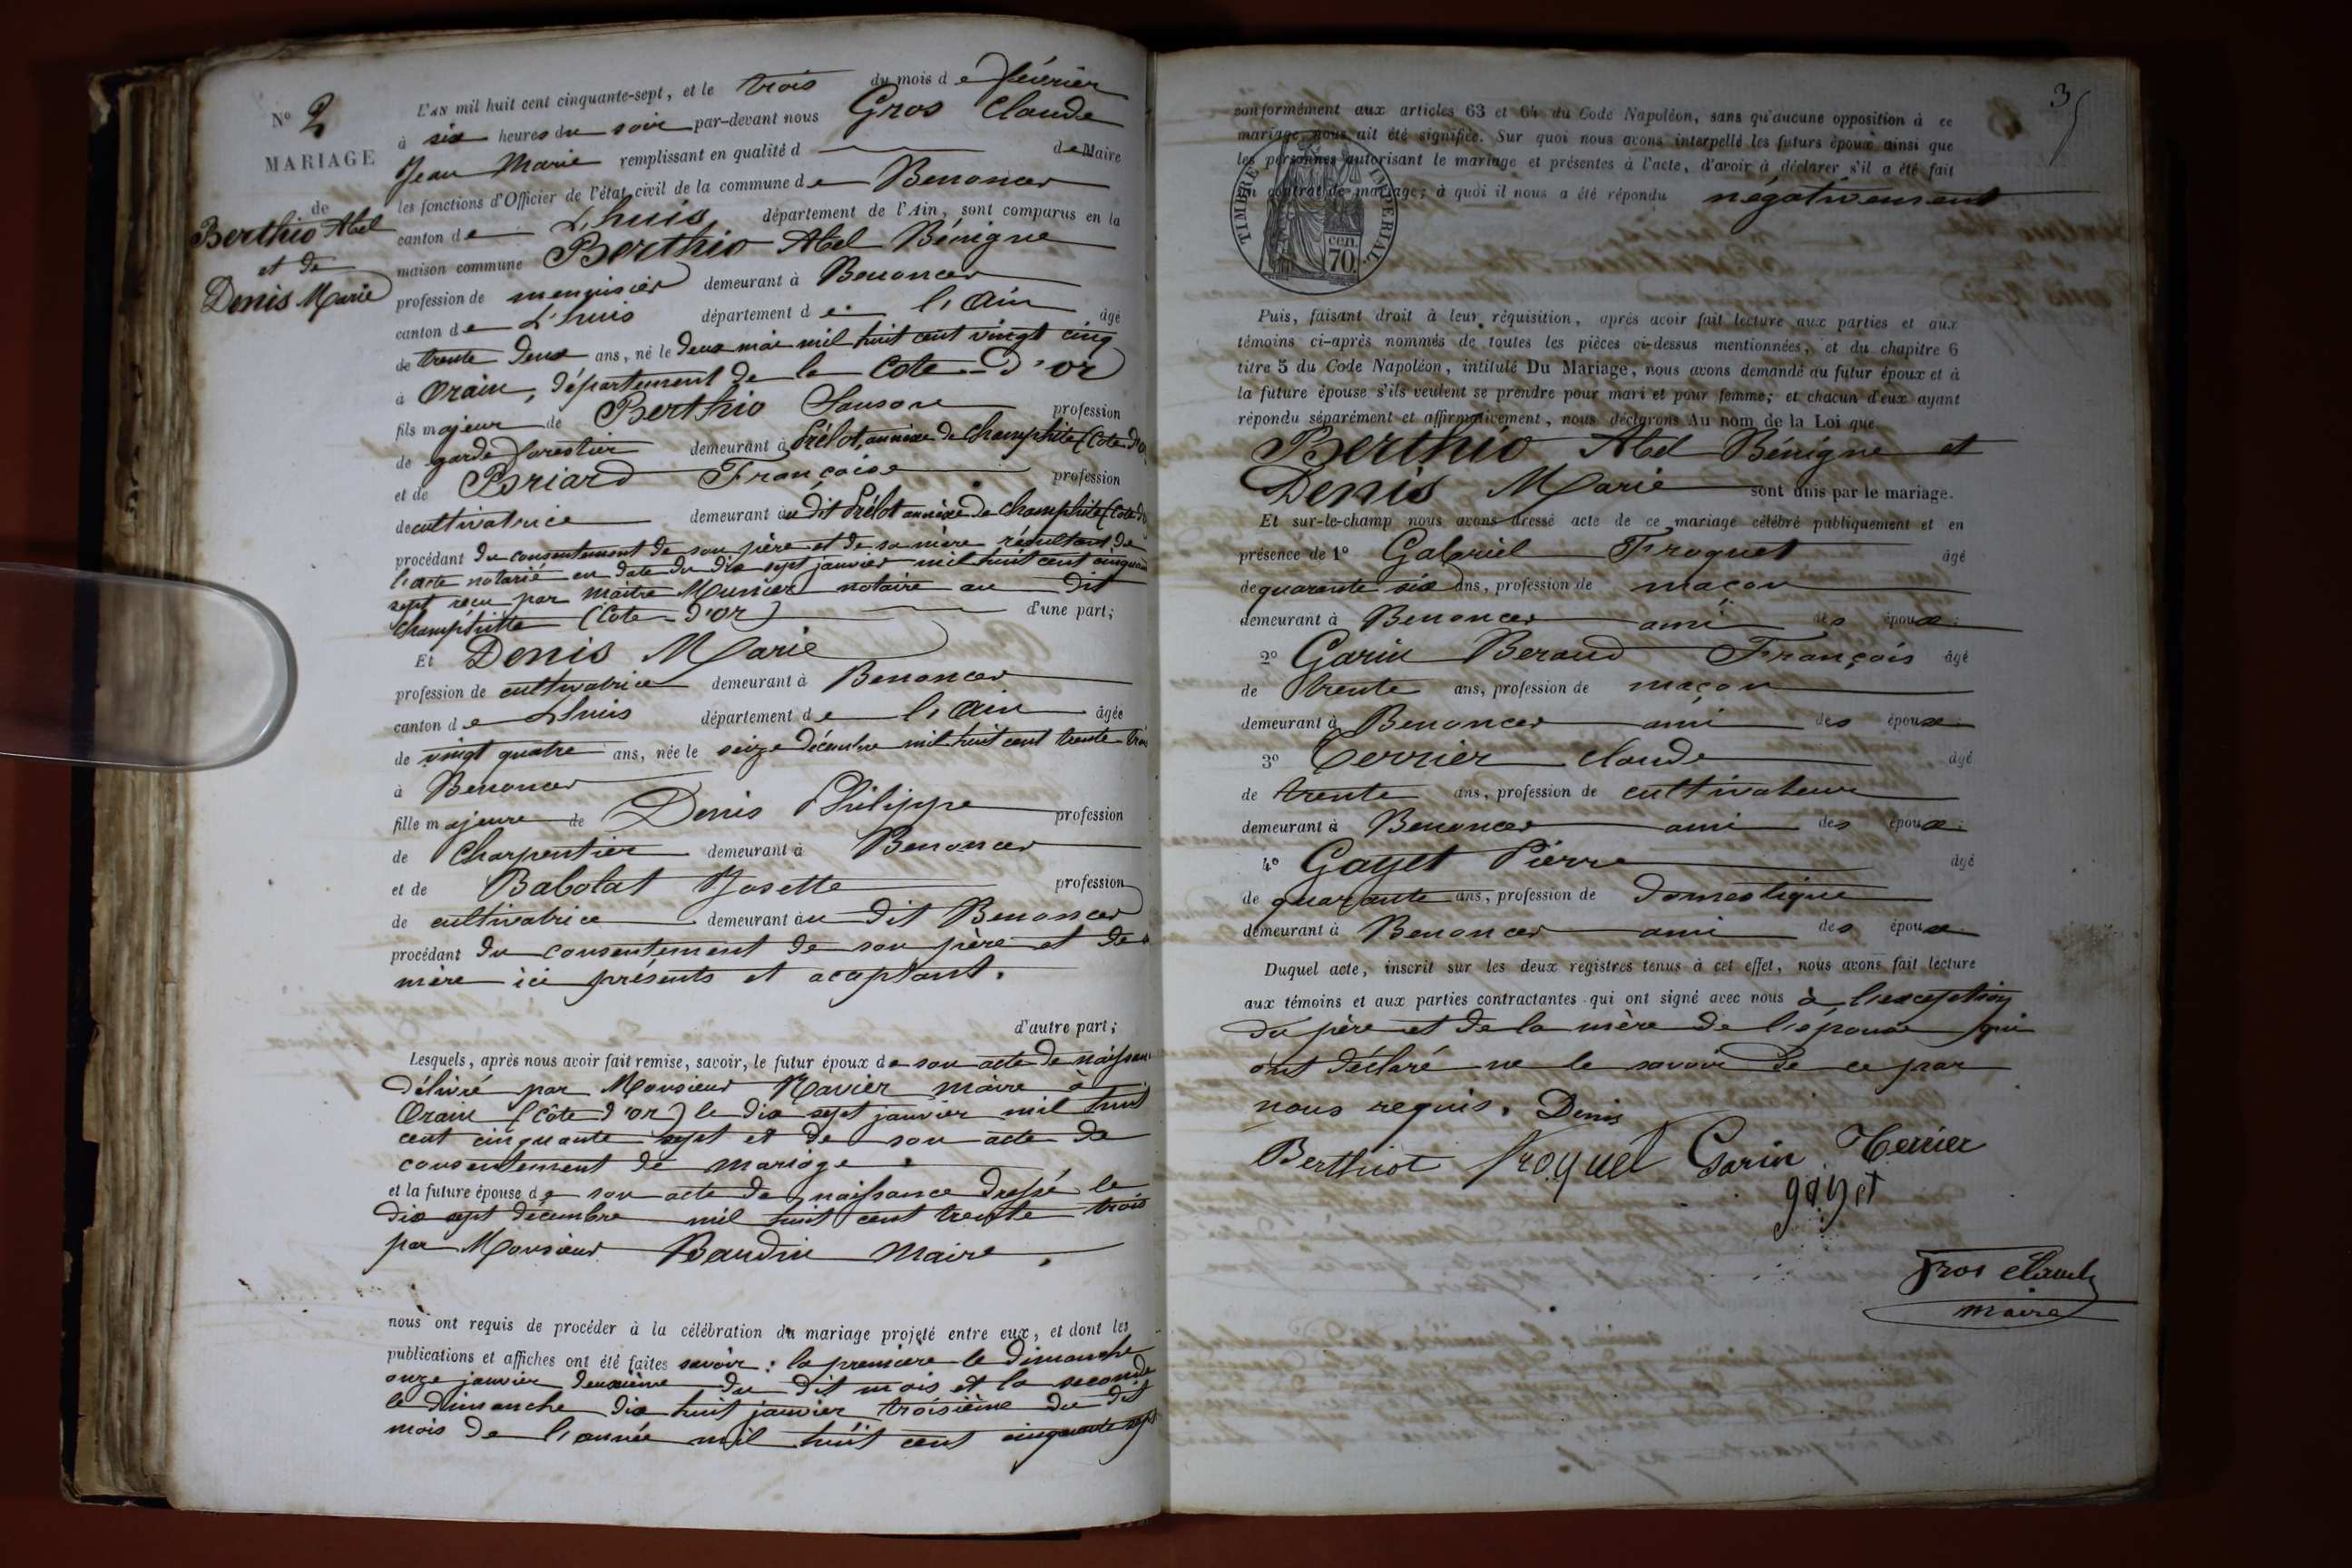 N° 2
MARIAGE
de
Berthio Abel
et de
Denis Marie
L'AN mil huit cent cinquante-sept, et le trois du mois de février
à six heures du soir par-devant nous Gros Claude
Jean Marie remplissant en qualité d de Maire
les fonctions d'Officier de l'état civil de la commune de Benonces
canton de Lhuis, département de l'Ain, sont comparus en la
maison commune Berthio Abel Bénigne
profession de menuisier demeurant à Benonces
canton de L'huis département de l'Ain âgé
de trente deux ans, né le deux mai mil huit cent vingt cinq
à Orain, département de la Cote-D'or
fils majeur de Berthio Sanson profession
de garde forestier demeurant à Prélot, annèxe de Champlite (Cote-D'o
et de Briard Françoise profession
de cultivatrice demeurant au dit Prélot annèxe de Champlite (Cote d'o
procédant du consentement de son père et de sa mère résultant de
l'acte notarié en date du dix sept janvier mil huit cent cinquante
sept reçu par maître Munier notaire au dit
Champlitte (Cote-D'or) d'une part;
Et Denis Marie
profession de cultivatrice demeurant à Benonces
canton de Lhuis département de l'Ain âgée
de vingt quatre ans, née le seize décembre mil huit cent trente trois
à Benonces
fille majeure de Denis Philippe profession
de Charpentier demeurant à Benonces
et de Babolat Josette profession
de cultivatrice demeurant au dit Benonces
procédant du consentement de son père et de s
mère ici présents et acaptant.
d'autre part;
Lesquels, après nous avoir fait remise, savoir, le futur époux de son acte de naissan
délivré par Monsieur Ravier maire à
Orain (côte d'or) le dix sept janvier mil huit
cent cinquante sept et de son acte de
consentement de mariage
et la future épouse de son acte de naissance dressé le
dix sept décembre mil huit cent trente trois
par Monsieur Baudin Maire.
nous ont requis de procéder à la célébration du mariage projeté entre eux, et dont les
publications et affiches ont été faites savoir: la première le dimanche
onze janvier deuxième du dit mois et la seconde
le dimanche dix huit janvier troisième du dit
mois de l'année mil huit cent cinquante sept
3
conformément aux articles 63 et 64 du Code Napoléon, sans qu'aucune opposition à ce
mariage nous ait été signifiée. Sur quoi nous avons interpellé les futurs époux ainsi que
les personnes autorisant le mariage et présentes à l'acte, d'avoir à déclarer s'il a été fait
un contrat de mariage; à quoi il nous a été répondu négativement
TIMBRE IMPERIAL
70 cen.
Puis, faisant droit à leur réquisition, après avoir fait lecture aux parties et aux
témoins ci-après nommés de toutes les pièces ci-dessus mentionnées, et du chapitre 6
titre 5 du Code Napoléon, intitulé Du Mariage, nous avons demandé au futur époux et à
la future épouse s'ils veulent se prendre pour mari et pour femme; et chacun d'eux ayant
répondu séparément et affirmativement, nous déclarons Au nom de la Loi que
Berthio Abel Bénigne et
Denis Marie sont unis par le mariage.
Et sur-le-champ nous avons dressé acte de ce mariage célébré publiquement et en
présence de 1° Gabriel Troquet âgé
de quarante six ans, profession de maçon
demeurant à Benonces ami des époux;
2° Garin Beraud François âgé
de trente ans, profession de maçon
demeurant à Benonces ami des époux;
3° Terrier Claude âgé
de trente ans, profession de cultivateur
demeurant à Benonces ami des époux;
4° Gayet Pierre âgé
de quarante ans, profession de domestique
demeurant à Benonces ami des époux
Duquel acte, inscrit sur les deux registres tenus à cet effet, nous avons fait lecture
aux témoins et aux parties contractantes qui ont signé avec nous à l'exception
du père et de la mère de l'épouse qui
ont déclaré ne le savoir de ce par
nous requis. Denis
Berthiot Troquet Garin Terrier
gayet
Gros Claude
maire